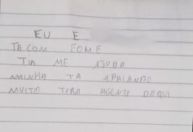 EU E
TA COM FOME
TIA ME AJUDA
MINHA TA APAIANDO
MUITO TIRA AGENTE DAQUI